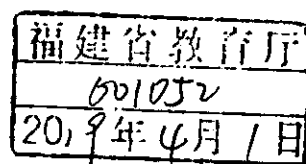 福建省教育厅
001052
2019年4月1日